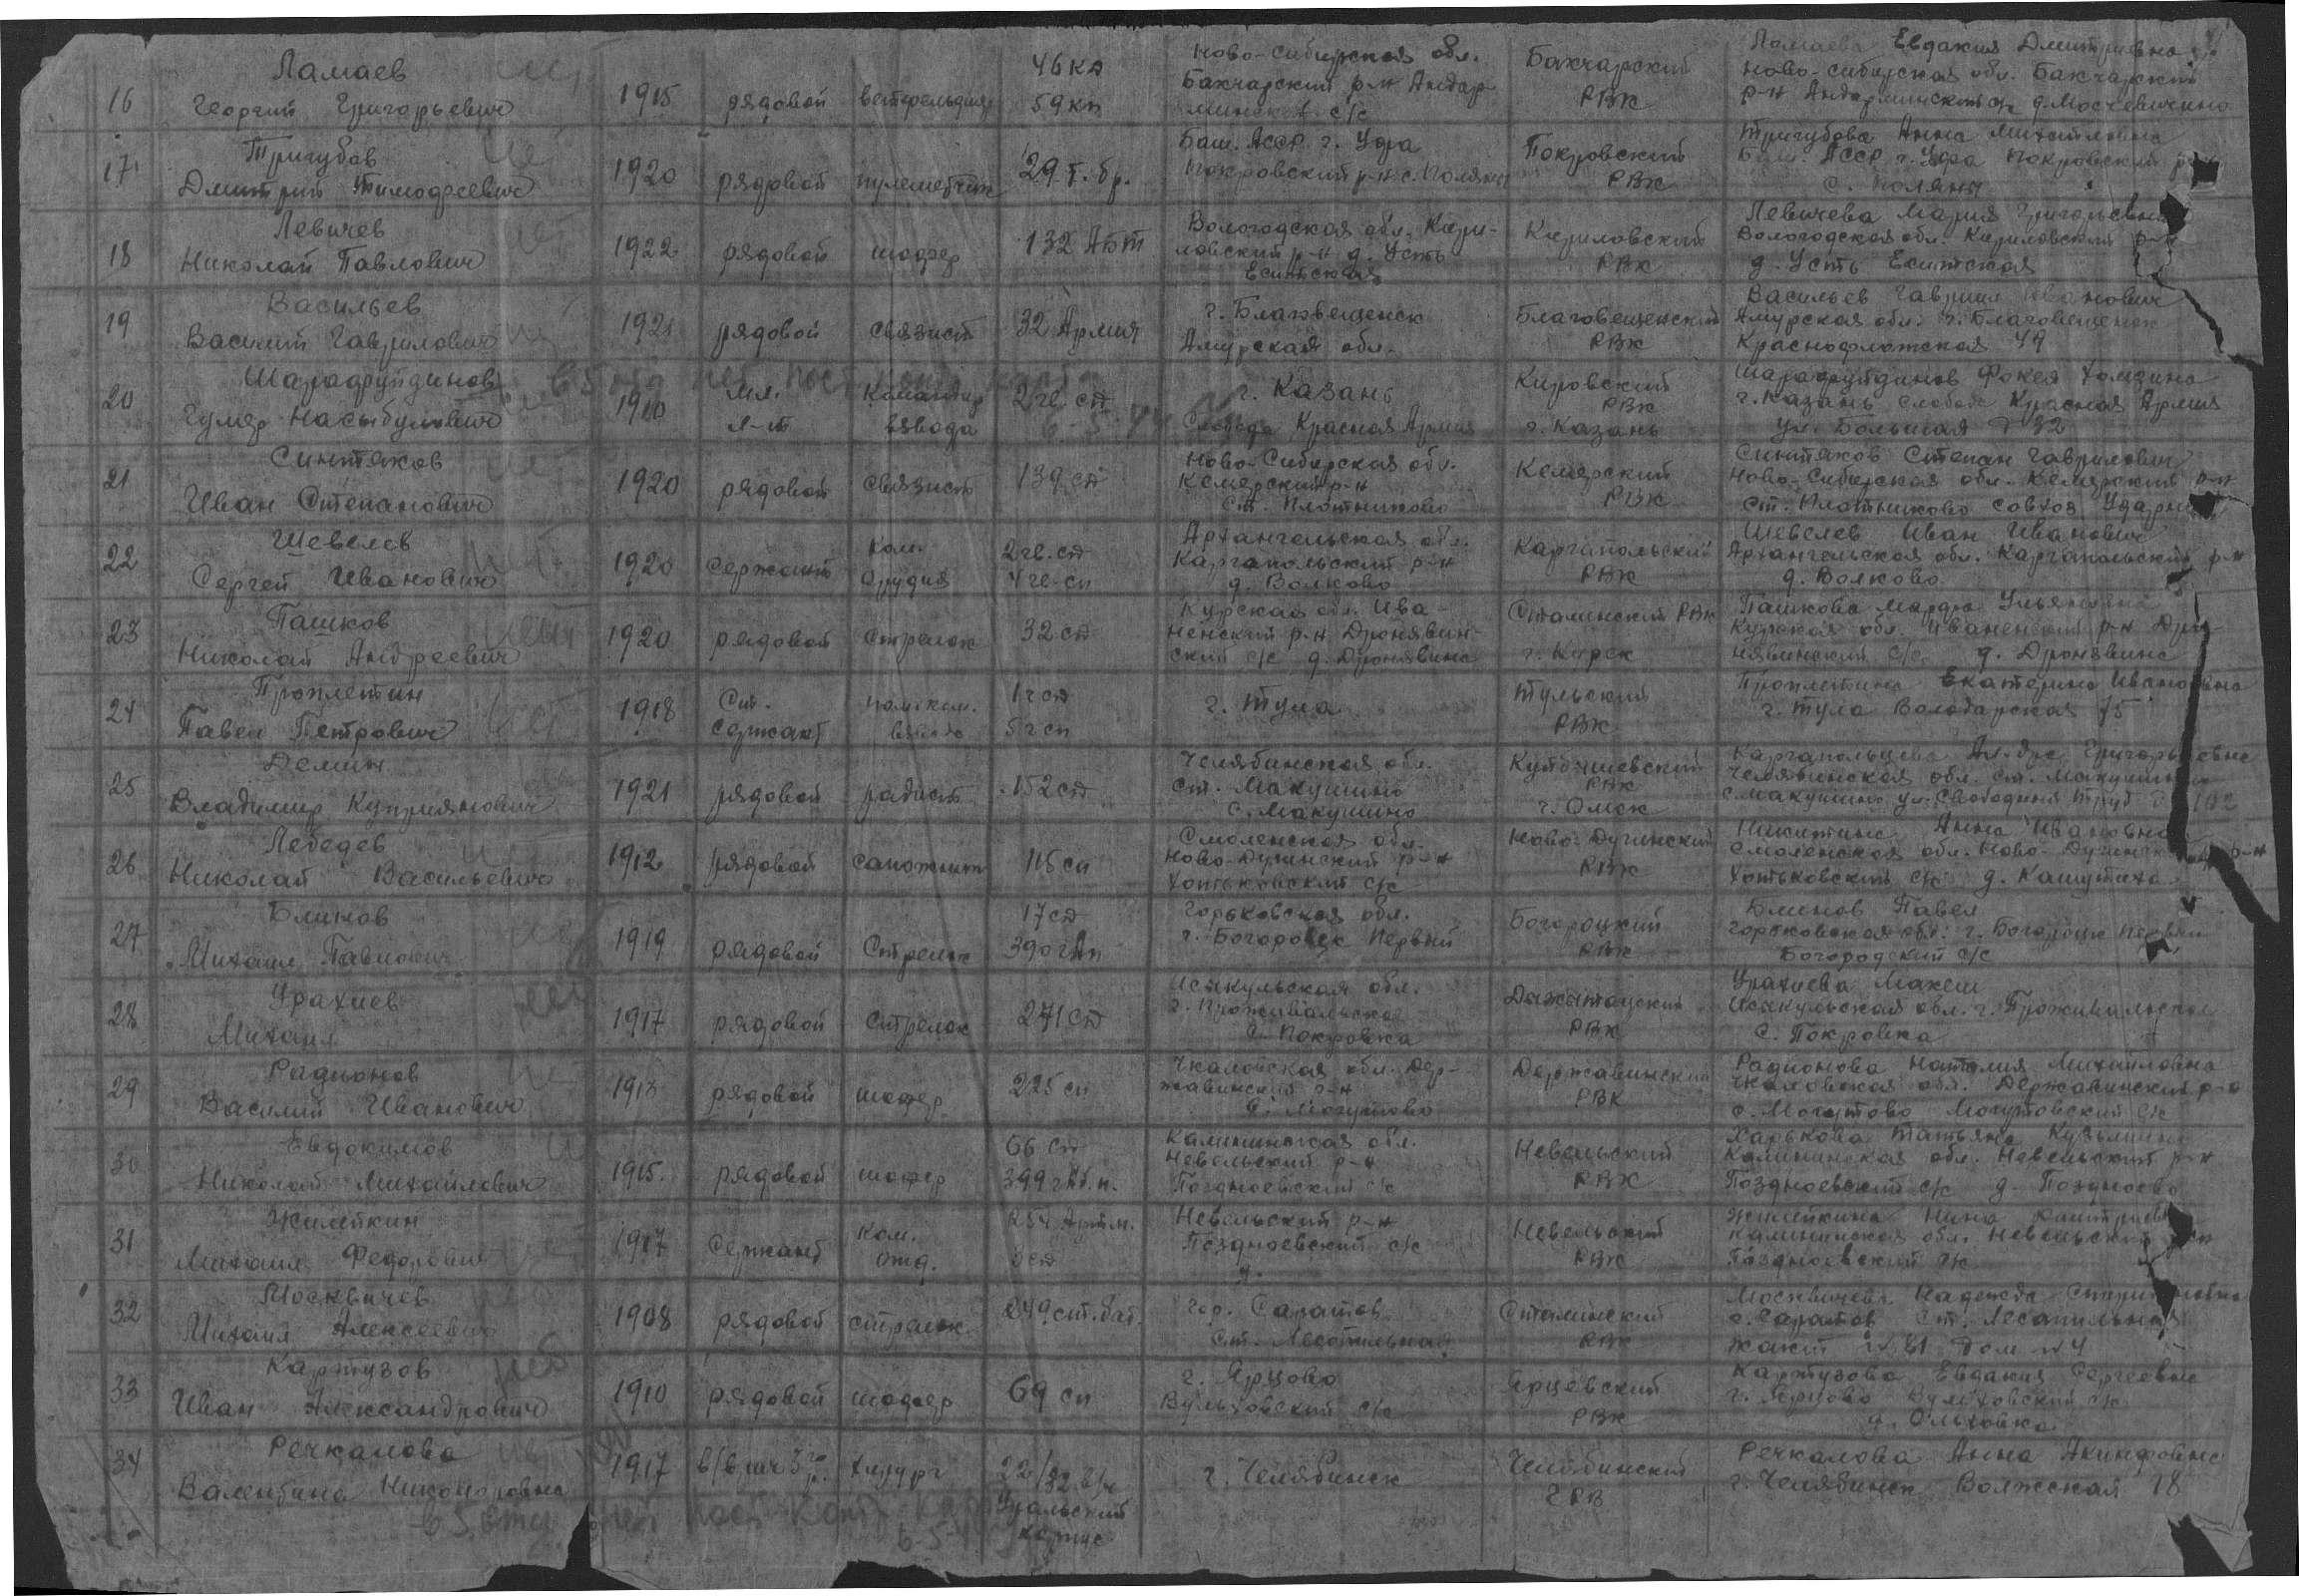 16
Ламаев
Георгий Григорьевич
1915
рядовой
46 кд
59 кп
Ново-Сибирская обл.
Бахчарский р-н Андар-
минск с/с
Бахчарский
РВК
Ламаева Евдакия Дмитриевна
Ново-Сибирская обл. Бахчарский
р-н Андарминский с/с д. Москевичино
17
Тригубов
Дмитрий Тимофеевич
1920
рядовой
пулеметчик
29 т. бр.
Баш. АССР г. Уфа
Покровский р-н с. Поляна
Покровский
РВК
Тригубова Анна Михайловна
Баш. АССР г. Уфа Покровский
с. Поляны
18
Левичев
Николай Павлович
1922
рядовой
шофер
132 Абт
Вологодская обл. Кири-
ловский р-н д. Усть
Еситская
Кириловский
РВК
Левичева Мария Григорьевна
Вологодская обл. Кириловский р-н
д. Усть Еситская
19
Васильев
Василий Гаврилович
1921
рядовой
связист
32 Армия
г. Благовещенск
Амурская обл.
Благовещенский
РВК
Васильев Гаврил Иванович
Амурская обл. г. Благовещенск
Краснофлотская 44
20
Шарафуйдинов
Гумяр Насыбулович
1910
мл.
л-т
командир
взвода
2 гв. сд
г. Казань
Слобода Красная Армия
Кировский
РВК
г. Казань
Шарафуйдинов Фокея Хамзина
г. Казань слобода Красная Армия
ул. Большая д 32
21
Синтяков
Иван Степанович
1920
рядовой
связист
139 сд
Ново-Сибирская обл.
Кемерский р-н
ст. Плотниково
Кемерский
РВК
Синтяков Степан Гаврилович
Ново-Сибирская обл. Кемерский р-н
ст. Плотниково совхоз
22
Шевелев
Сергей Иванович
1920
Сержант
ком.
орудия
2 гв. сд
4 гв. сп
Архангельская обл.
Каргапольский р-н
д. Волково
Каргапольский
РВК
Шевелев Иван Иванович
Архангельская обл. Каргапольский р-н
д. Волково
23
Пашков
Николай Андреевич
1920
рядовой
Стрелок
32 сд
Курская обл. Ива-
ненский р-н Дронявин-
ский с/с д. Дронявино
Сталинский РВК
г. Курск
Пашкова Марфа Ульяновна
Курская обл. Иваненский р-н Дро-
нявинский с/с д. Дронявино
24
Проплетин
Павел Петрович
1918
Ст.
Сержант
пом. ком.
взвода
г. Тула
Тульский
РВК
Проплетина Екатерина Ивановна
г. Тула Володарская 75
25
Демин
Владимир Куприянович
1921
рядовой
радист
152 сд
Челябинская обл.
ст. Макушино
с. Макушино
Куйбышевский
РВК
г. Омск
Каргапольцева Григорьевна
Челябинская обл. ст. Макушино
с. Макушино ул. Свободный труд 102
26
Лебедев
Николай Васильевич
1912
рядовой
сапожник
115 сп
Смоленская обл.
Ново-Дугинский р-н
Хотьковский с/с
Ново-Дугинский
РВК
Никитина Анна Ивановна
Смоленская обл. Ново-Дугинский р-н
Хотьковский с/с д. Кашутиха
27
Блинов
Михаил Павлович
1919
рядовой
Стрелок
17 сд
390 гАп
Горьковская обл.
г. Богородск Первый
Богороцкий
РВК
Блинов Павел
Горьковская обл. г. Богородск Первый
Богородский с/с
28
Урахиев
Михаил
1917
рядовой
Стрелок
271 сд
Исакульская обл.
с. Покровка
РВК
Урахиева
Исакульская обл. г.
с. Покровка
29
Радионов
Василий Иванович
1913
рядовой
шофер
225 сп
Чкаловская обл. Дер-
жавинский р-н
с. Могутово
Державинский
РВК
Радионова Наталия Михайловна
Чкаловская обл. Державинский р-о
с. Могутово Могутовский с/с
30
Евдокимов
Николай Михайлович
1915
рядовой
шофер
66 сд
399 гАб. п.
Калининская обл.
Невельский р-н
Поздноевский с/с
Невельский
РВК
Харькова Татьяна Кузьминич
Калининская обл. Невельский р-н
Поздноевский с/с д. Поздноево
31
Жилейкин
Михаил Федорович
1917
Сержант
ком.
отд.
254 Арт. п.
3 сд
Невельский р-н
Поздноевский с/с
д.
Невельский
РВК
Жилейкина Нина
Калининская обл. Невельский
Поздноевский с/с
32
Москвичев
Михаил Алексеевич
1908
рядовой
стрелок
249 ст. бат.
гор. Саратов
ст. Лесопильная
Сталинский
РВК
Москвичева Надежда
г. Саратов ст. Лесопильная
жакт №81 дом №4
33
Картузов
Иван Александрович
1910
рядовой
шофер
69 сп
г. Ярцово
Вульховский с/с
Ярцевский
РВК
Картузова Евдакия Сергеевна
г. Ярцово Вульховский с/с
д. Ольховка
34
Речкалова
Валентина Никоноровна
1917
хирург
22/32 в/ч
Уральский
корпус
г. Челябинск
Челябинский
ГРВ
Речкалова Анна Акинфовна
г. Челябинск Волжская 18